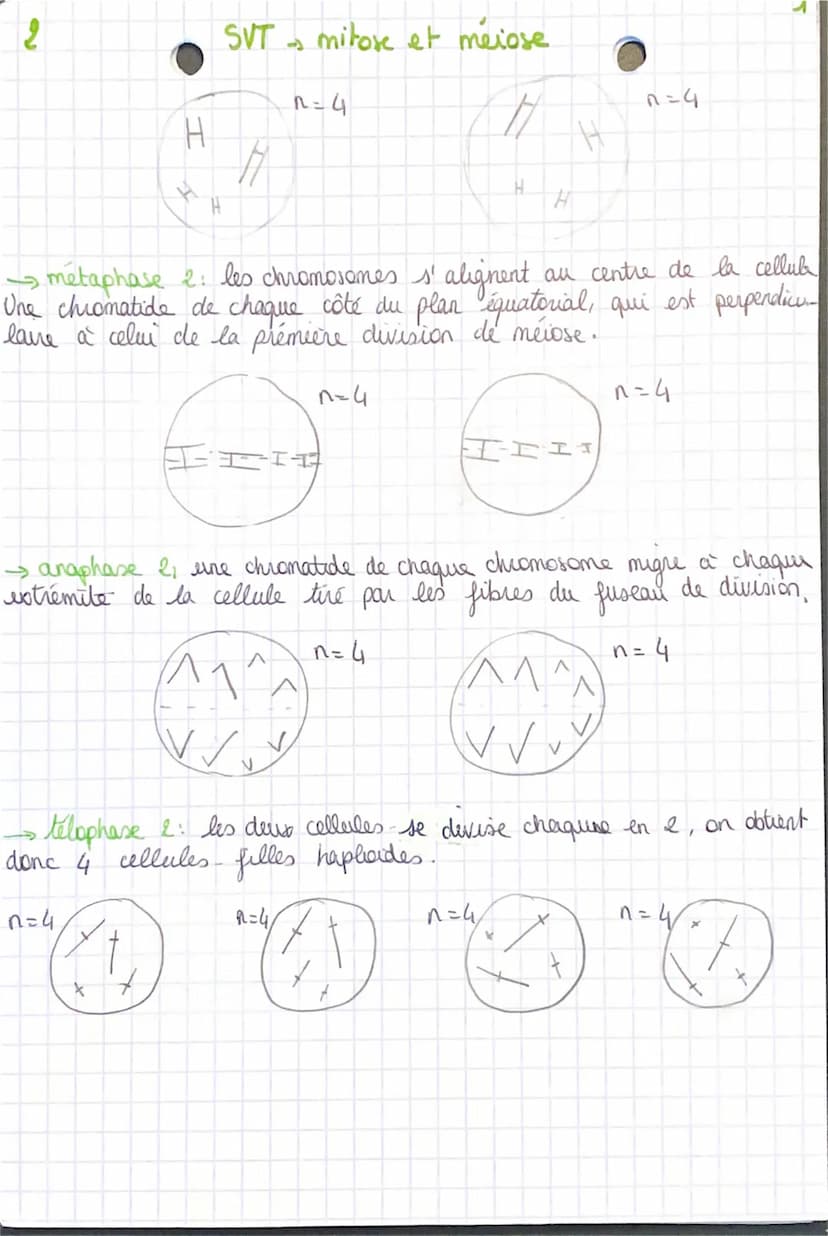 2
1
SVT → mitose et méiose
n=4
n=4
→ métaphase 2: les chromosomes s'alignent au centre de la cellule
Une chromatide de chaque côté du plan équatorial, qui est perpendicu-
laire à celui de la prémière division de méiose.
n=4
n=4
→ anaphase 2, une chromatide de chaque chromosome migre à chaque
extrémité de la cellule tiré par les fibres du fuseau de division.
n=4
n=4
→ télophase 2: les deux cellules se divise chaqune en 2, on obtient
donc 4 cellules-filles haploïdes.
n=4
n=4
n=4
n=4